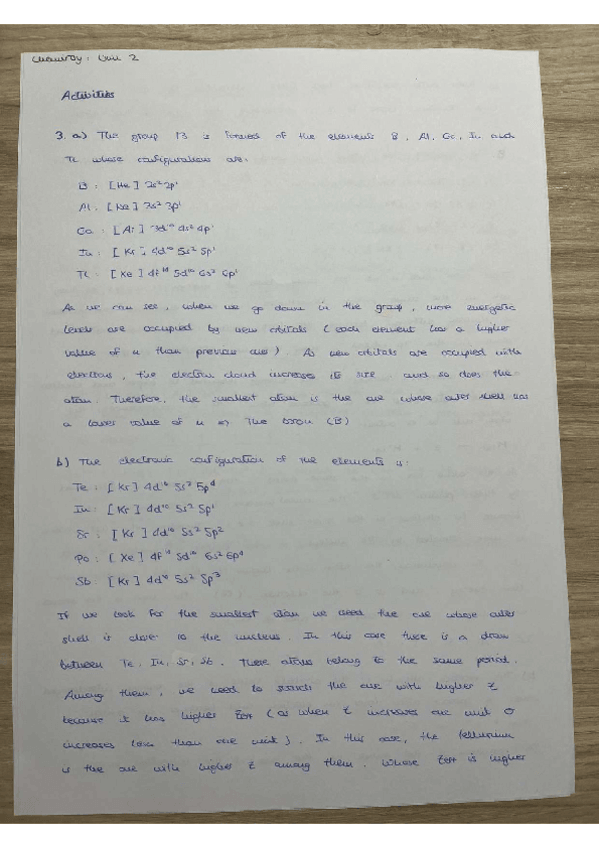 Chemistry. Unit 2
Activities
3. a) The group 13 is formed of the elements B, Al, Ga, In and
TL whose configurations are:
B : [He] 2s² 2p¹
Al : [Ne] 3s² 3p¹
Ga : [Ar] 3d¹⁰ 4s² 4p¹
In : [Kr] 4d¹⁰ 5s² 5p¹
TL : [Xe] 4f¹⁴ 5d¹⁰ 6s² 6p¹
As we can see, when we go down in the group, more energetic
levels are occupied by new orbitals (each element has a higher
value of n than previous one). As new orbitals are occupied with
electrons, the electron cloud increases its size and so does the
atom. Therefore, the smallest atom is the one whose outer shell has
a lower value of n => The boron (B)
b) The electronic configuration of the elements is:
Te : [Kr] 4d¹⁰ 5s² 5p⁴
In : [Kr] 4d¹⁰ 5s² 5p¹
Sr : [Kr] 4d¹⁰ 5s² 5p²
Po : [Xe] 4f¹⁴ 5d¹⁰ 6s² 6p⁴
Sb : [Kr] 4d¹⁰ 5s² 5p³
If we look for the smallest atom we need the one whose outer
shell is closer to the nucleus. In this case there is a draw
between Te, In, Sr, Sb. These atoms belong to the same period.
Among them, we need to search the one with higher Z
because it has higher Zeff (as when Z increases one unit σ
increases less than one unit). In this case, the tellurium
is the one with higher Z among them. Whose Zeff is higher